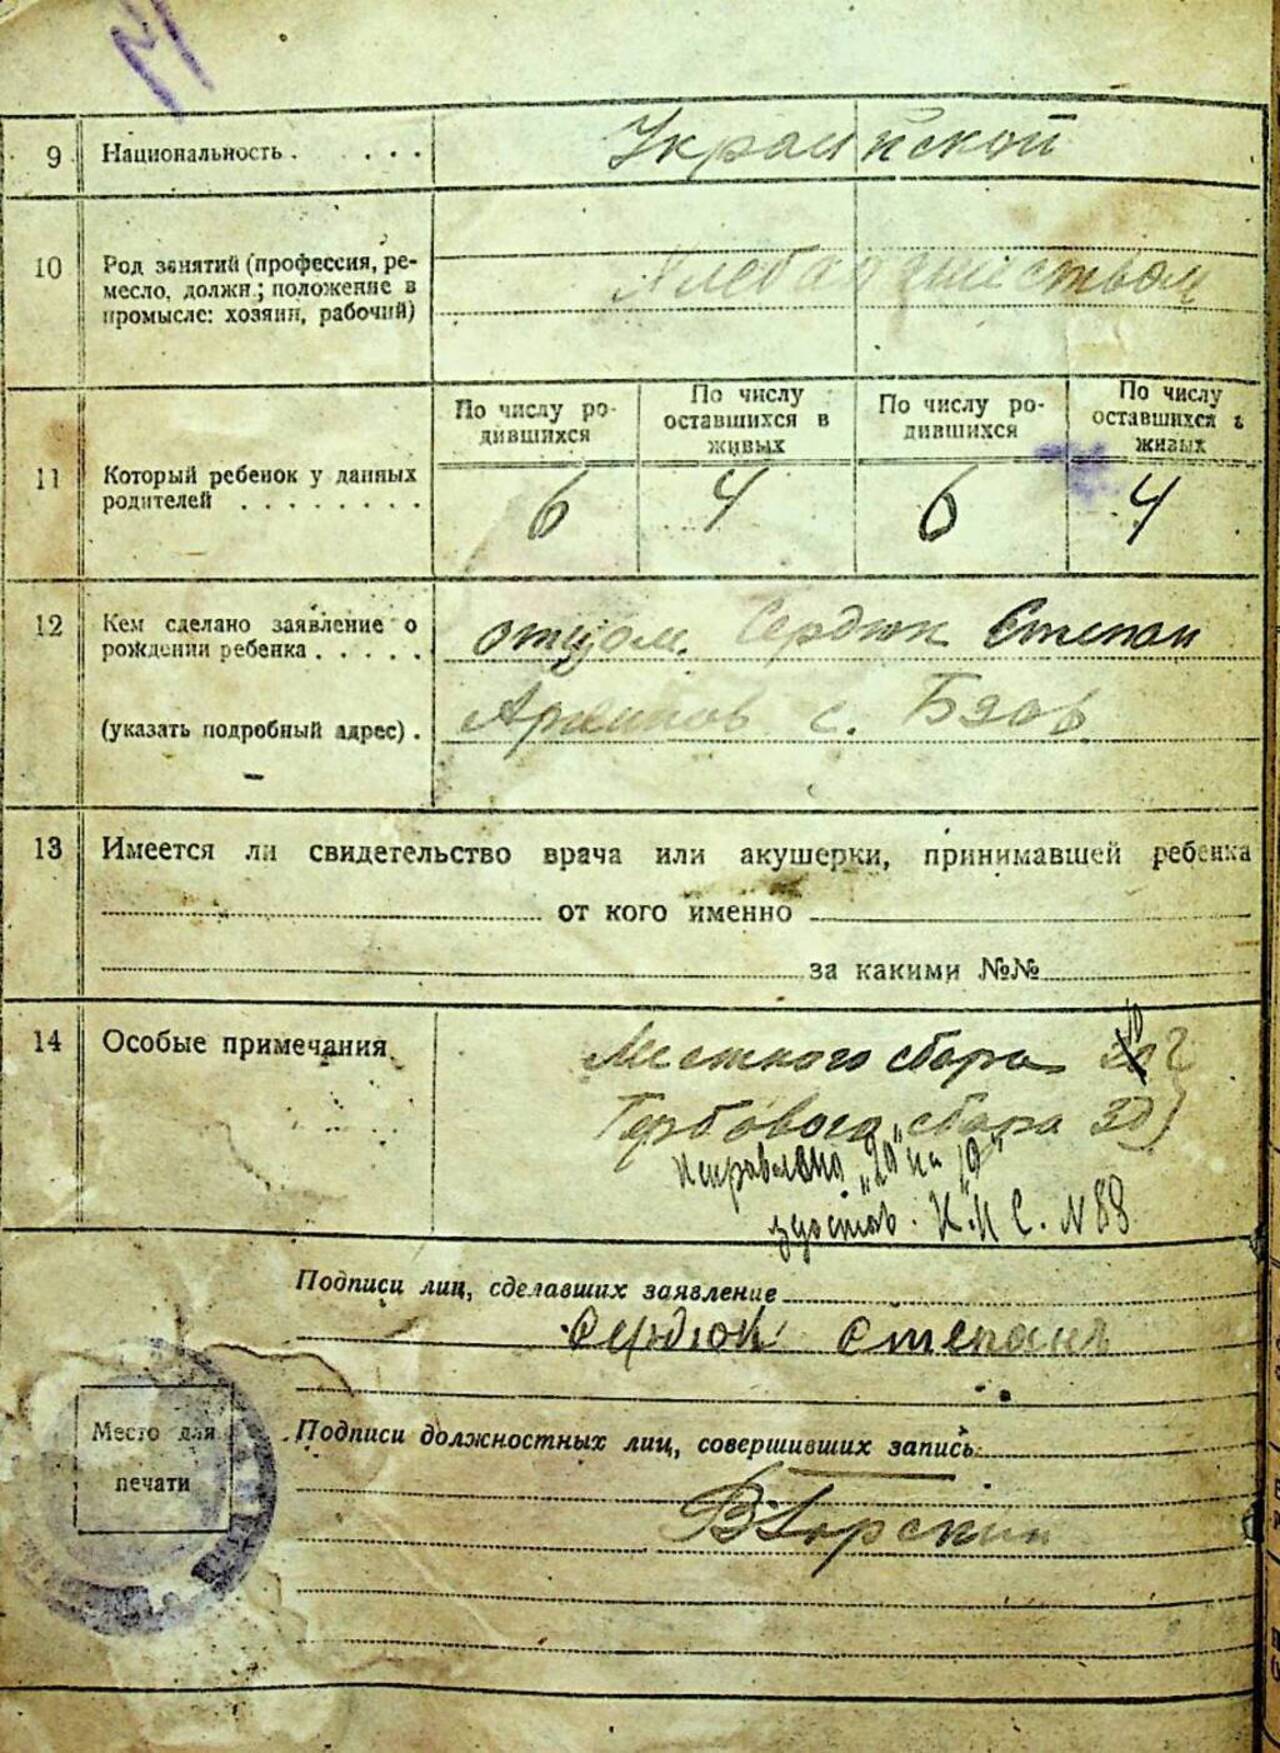 9 Национальность . . . . .
Украинской
10 Род занятий (профессия, ре-
месло, должн.; положение в
промысле: хозяин, рабочий)
По числу ро-
дившихся
По числу
оставшихся в
живых
По числу ро-
дившихся
По числу
оставшихся в
живых
11 Который ребенок у данных
родителей . . . . . . . .
6 4 6 4
12 Кем сделано заявление о
рождении ребенка . . . . .
отцом. Сердюк Степан
(указать подробный адрес) .
с. Бзов
13 Имеется ли свидетельство врача или акушерки, принимавшей ребенка
от кого именно
за какими №№
14 Особые примечания
Местного сбора
Гербового сбора 30
исправлено „20“ на „10“
Н.М.С. N 88
Подписи лиц, сделавших заявление
Сердюк Степан
Место для
печати
Подписи должностных лиц, совершивших запись